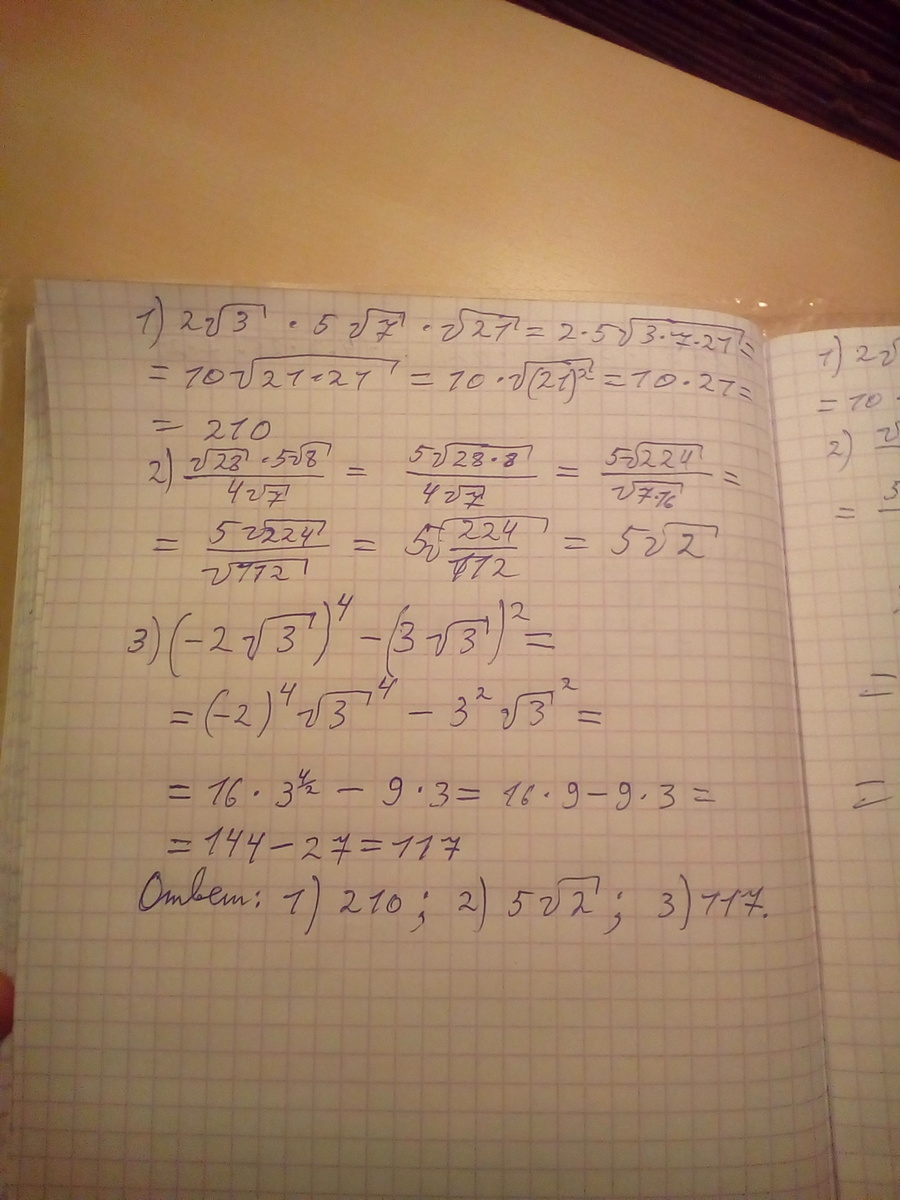 1) 2√3 · 5√7 · √21 = 2·5√(3·7·21) =
= 10√(21·21) = 10·√((21)²) = 10·21 =
= 210
2) (√28 · 5√8)/(4√7) = (5√(28·8))/(4√7) = (5√224)/(√(7·16)) =
= (5√224)/(√112) = 5√(224/112) = 5√2
3) (-2√3)⁴ - (3√3)² =
= (-2)⁴√3⁴ - 3²√3² =
= 16·3^(4/2) - 9·3 = 16·9 - 9·3 =
= 144 - 27 = 117
Ответ: 1) 210; 2) 5√2; 3) 117.
1) 2√
= 10
2) √
=
=
=